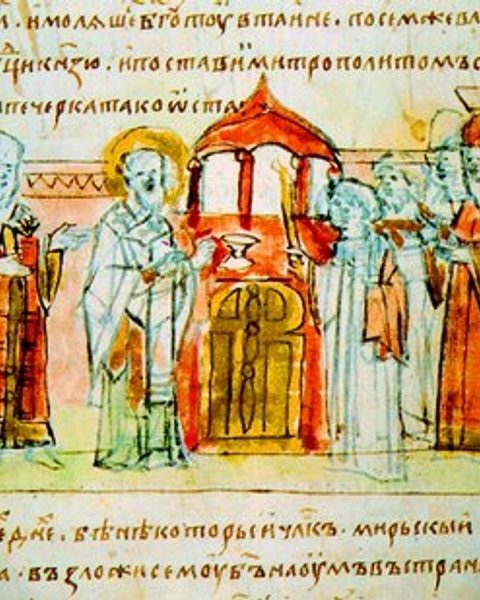 . имолѧше бг҃а тоу втаине. посемже вл
кн҃зю. ипостави митрополитомъ с
печерка такоѿста
дн҃е. бѣ нѣкоторыи чл҃къ. мирьскыи
а. възложи семоу б҃ъ наоумъ въ стран